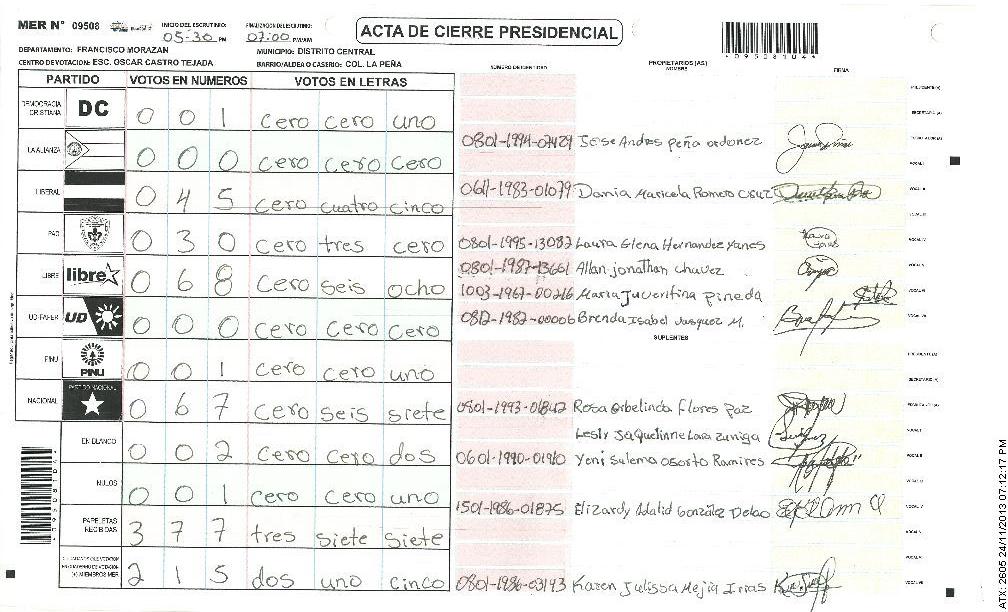 MER N° 09508 INICIO DEL ESCRUTINIO: 05-30 PM FINALIZACION DEL ESCRUTINIO: 07:00 PM/AM
ACTA DE CIERRE PRESIDENCIAL
*09508104*
DEPARTAMENTO: FRANCISCO MORAZAN MUNICIPIO: DISTRITO CENTRAL
CENTRO DE VOTACION: ESC. OSCAR CASTRO TEJADA BARRIO/ALDEA O CASERIO: COL. LA PEÑA
NUMERO DE IDENTIDAD PROPIETARIOS (AS) NOMBRE FIRMA
PARTIDO VOTOS EN NUMEROS VOTOS EN LETRAS
DEMOCRACIA CRISTIANA DC 0 0 1 cero cero uno
LA ALIANZA 0 0 0 cero cero cero
LIBERAL 0 4 5 cero cuatro cinco
PAC 0 3 0 cero tres cero
LIBRE libre 0 6 8 cero seis ocho
UD-FAPER UD 0 0 0 cero cero cero
PINU PINU 0 0 1 cero cero uno
NACIONAL PARTIDO NACIONAL 0 6 7 cero seis siete
EN BLANCO 0 0 2 cero cero dos
NULOS 0 0 1 cero cero uno
PAPELETAS RECIBIDAS 3 7 7 tres siete siete
(+) MIEMBROS MER 2 1 5 dos uno cinco
0801-1994-07429 Jose Andres peña ordonez
0611-1983-01079 Dania Maricela Romero Cruz
0801-1995-13082 Laura Elena Hernandez Yanes
0801-1987-13661 Allan jonathan chavez
1003-1967-00216 Maria Juventina pineda
0812-1982-00006 Brenda Isabel Vasquez M.
SUPLENTES
0801-1993-01842 Rosa orbelinda flores paz
Lesly Jaquelinne Lara Zuniga
0601-1990-01910 Yeni Salema osorto Ramires
1501-1986-01875 Elizardy Adalid González Delao
0801-1986-03193 Karen Julissa Mejia Irias
ATX: 2605 24/11/2013 07:12:17 PM